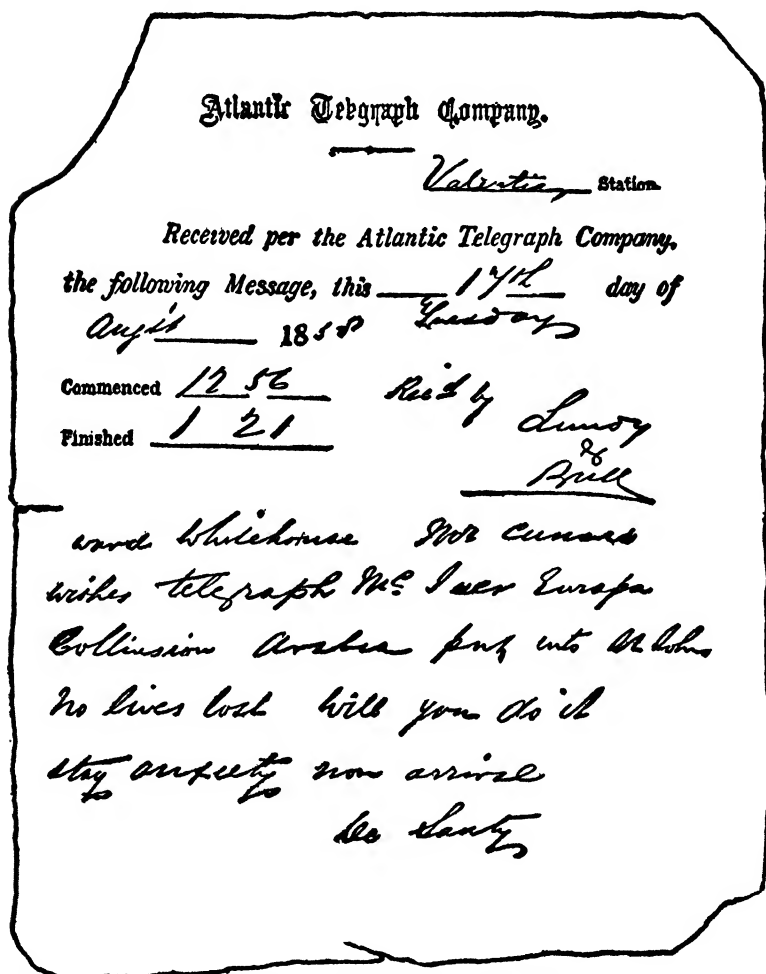 Atlantic Telegraph Company.
Valentia Station.
Received per the Atlantic Telegraph Company.
the following Message, this 17th day of
Augst 1858 Tuesday
Commenced 12 56 Recd by
Finished 1 21 Lundy
&
Bull
ward Whitehouse Mr Cunard
wishes telegraph Mc Iver Europa
Collinsion Arabia put into St Johns
No lives lost Will you do it
stay anxiety non arrival
De Sauty